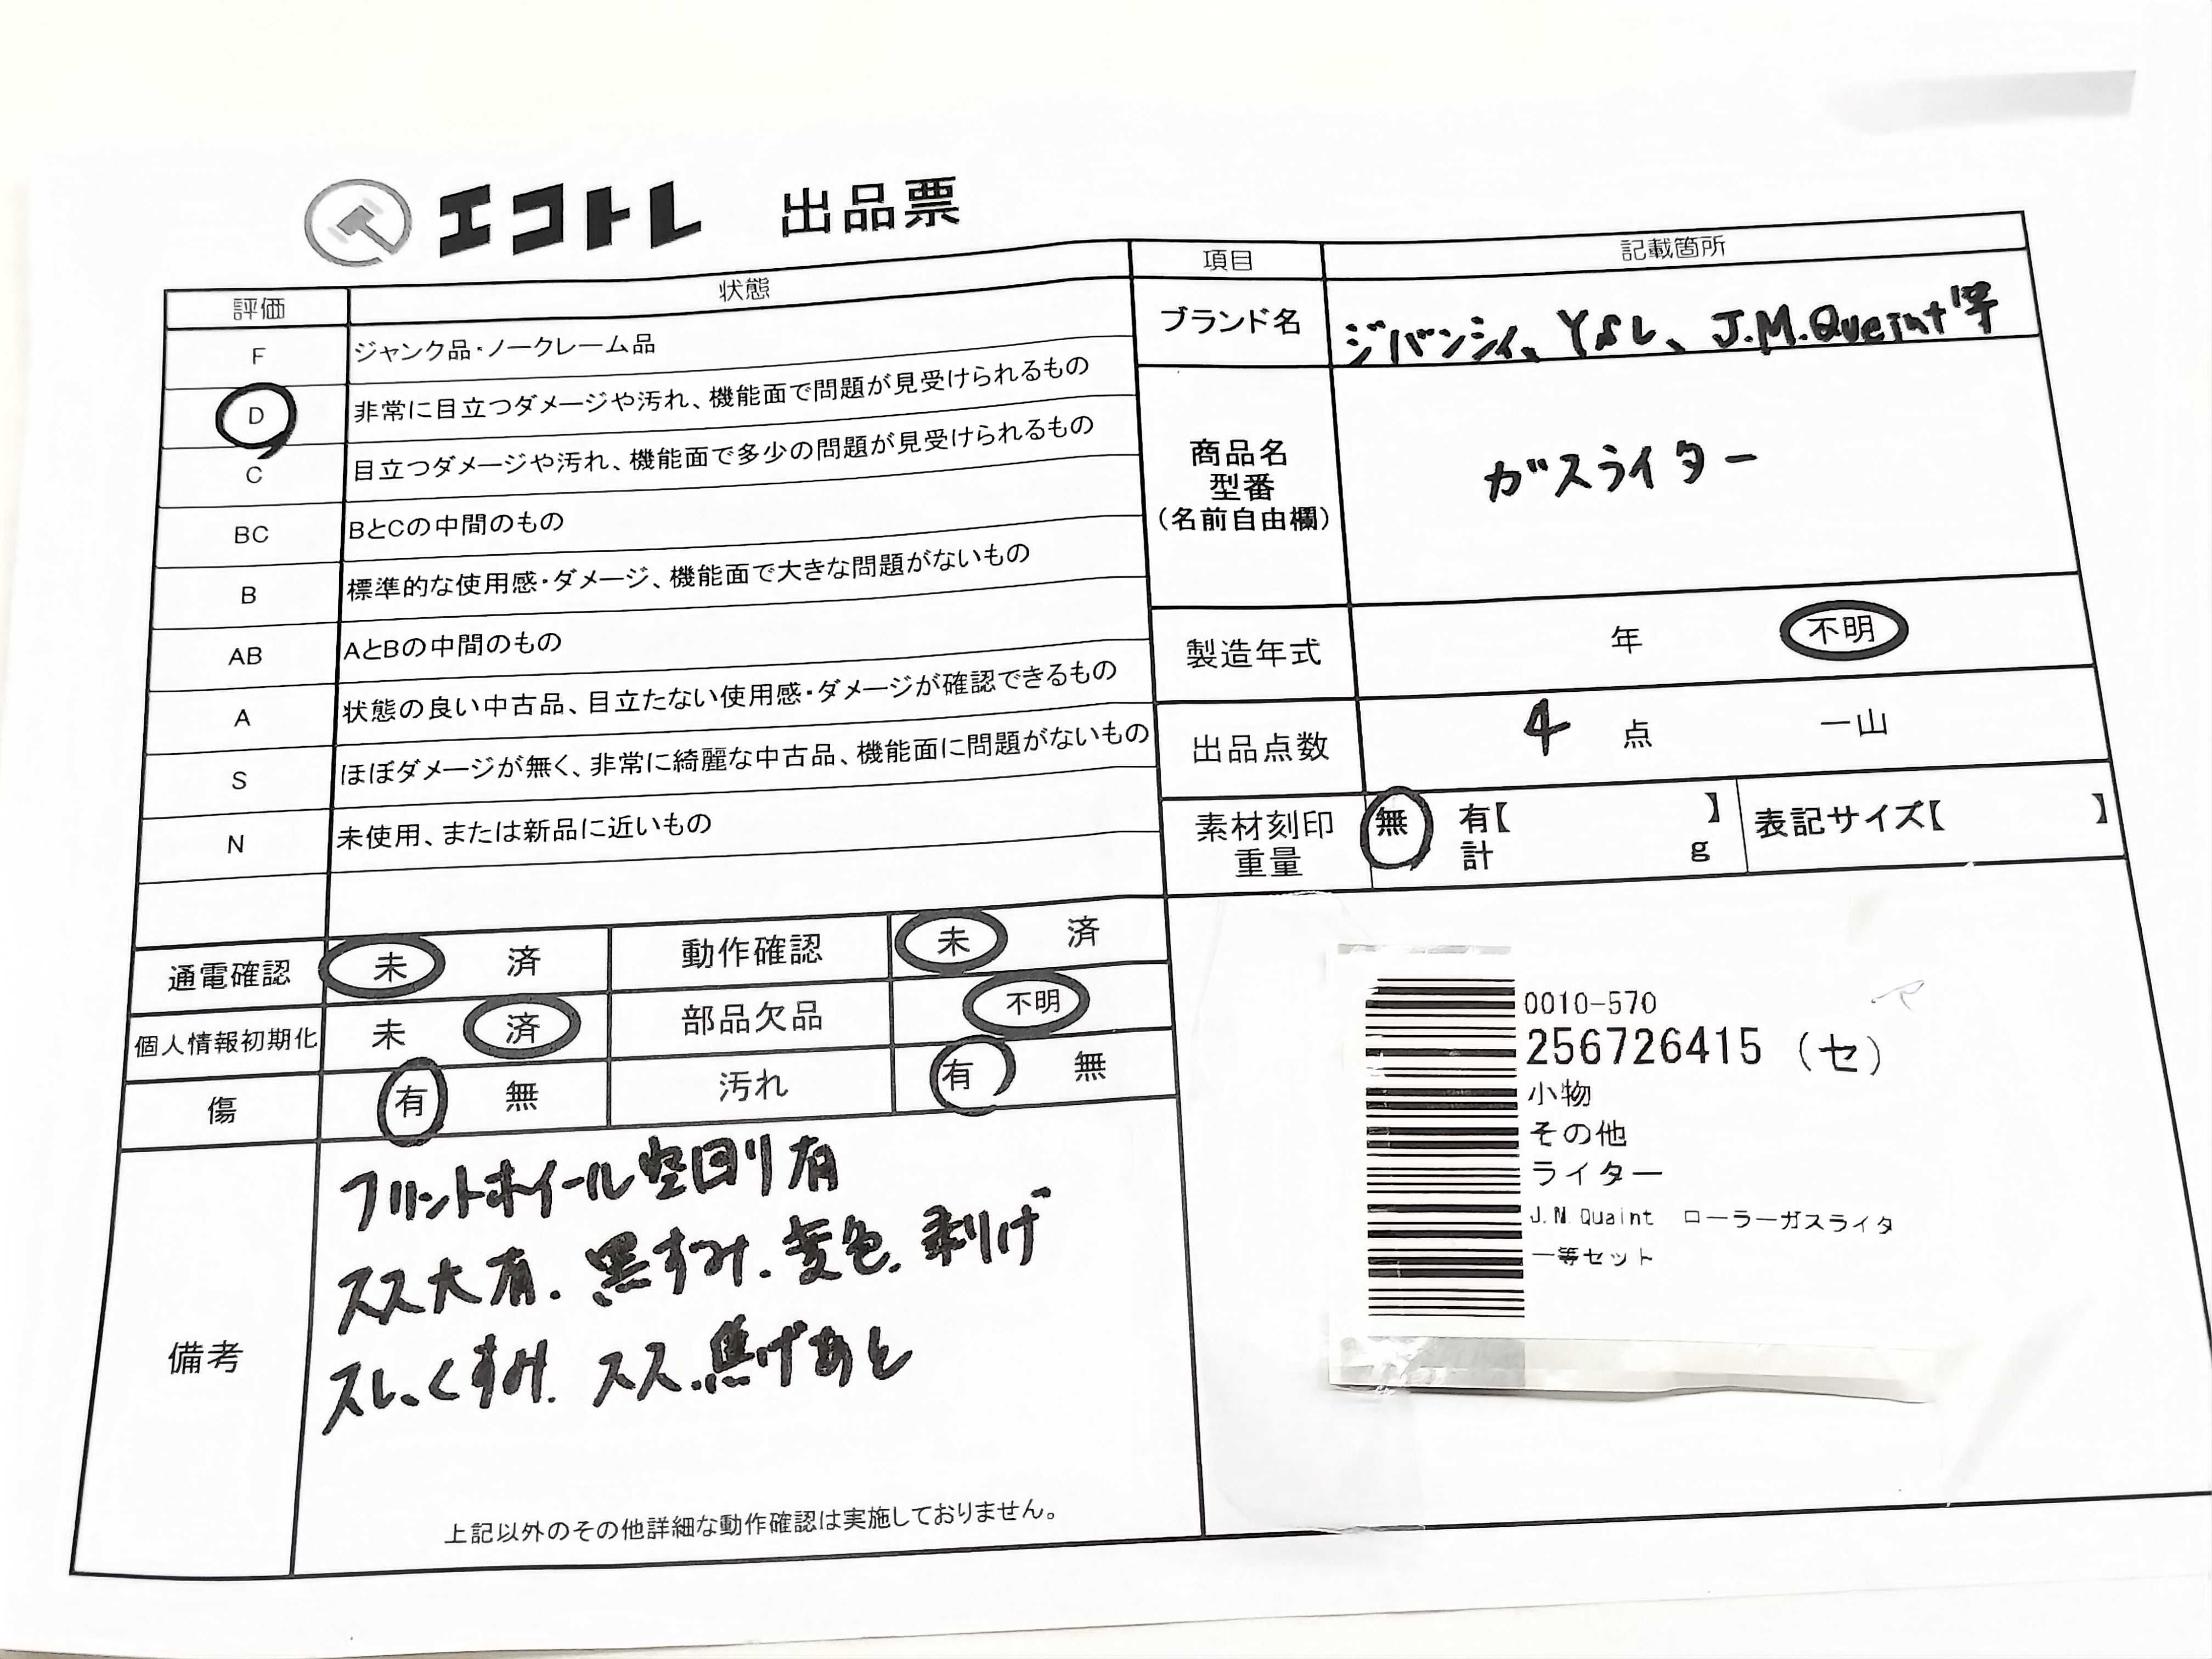 エコトレ 出品票
評価 状態
F ジャンク品・ノークレーム品
D 非常に目立つダメージや汚れ、機能面で問題が見受けられるもの
C 目立つダメージや汚れ、機能面で多少の問題が見受けられるもの
BC BとCの中間のもの
B 標準的な使用感・ダメージ、機能面で大きな問題がないもの
AB AとBの中間のもの
A 状態の良い中古品、目立たない使用感・ダメージが確認できるもの
S ほぼダメージが無く、非常に綺麗な中古品、機能面に問題がないもの
N 未使用、または新品に近いもの
通電確認 未 済 動作確認 未 済
個人情報初期化 未 済 部品欠品 不明
傷 有 無 汚れ 有 無
備考
フリントホイール空回り有
スス大有. 黒ずみ. 変色. 剥げ
スレ、くすみ. スス.焦げあと
上記以外のその他詳細な動作確認は実施しておりません。
項目 記載箇所
ブランド名 ジバンシィ、YSL、J.M.Queint等
商品名
型番
(名前自由欄)
ガスライター
製造年式 年 不明
出品点数 4 点 一山
素材刻印 無 有【 】 表記サイズ【 】
重量 計 g
0010-570
256726415 (セ)
小物
その他
ライター
J.N.Quaint ローラーガスライタ
ー等セット